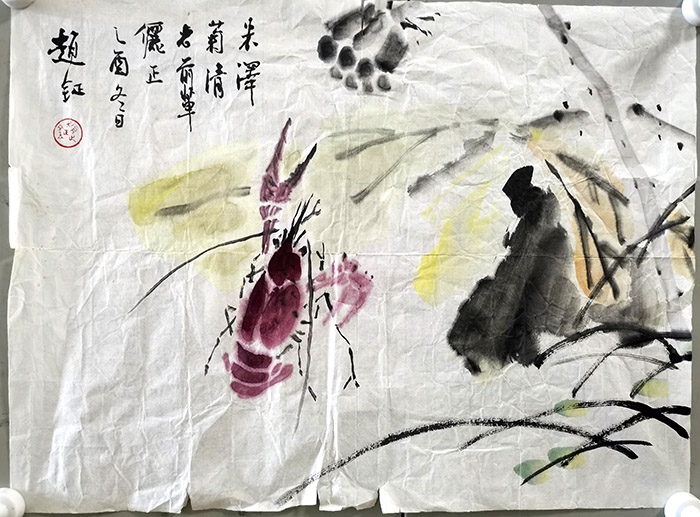 米澤
菊清
老前輩
儷正
乙酉冬日
趙鉦